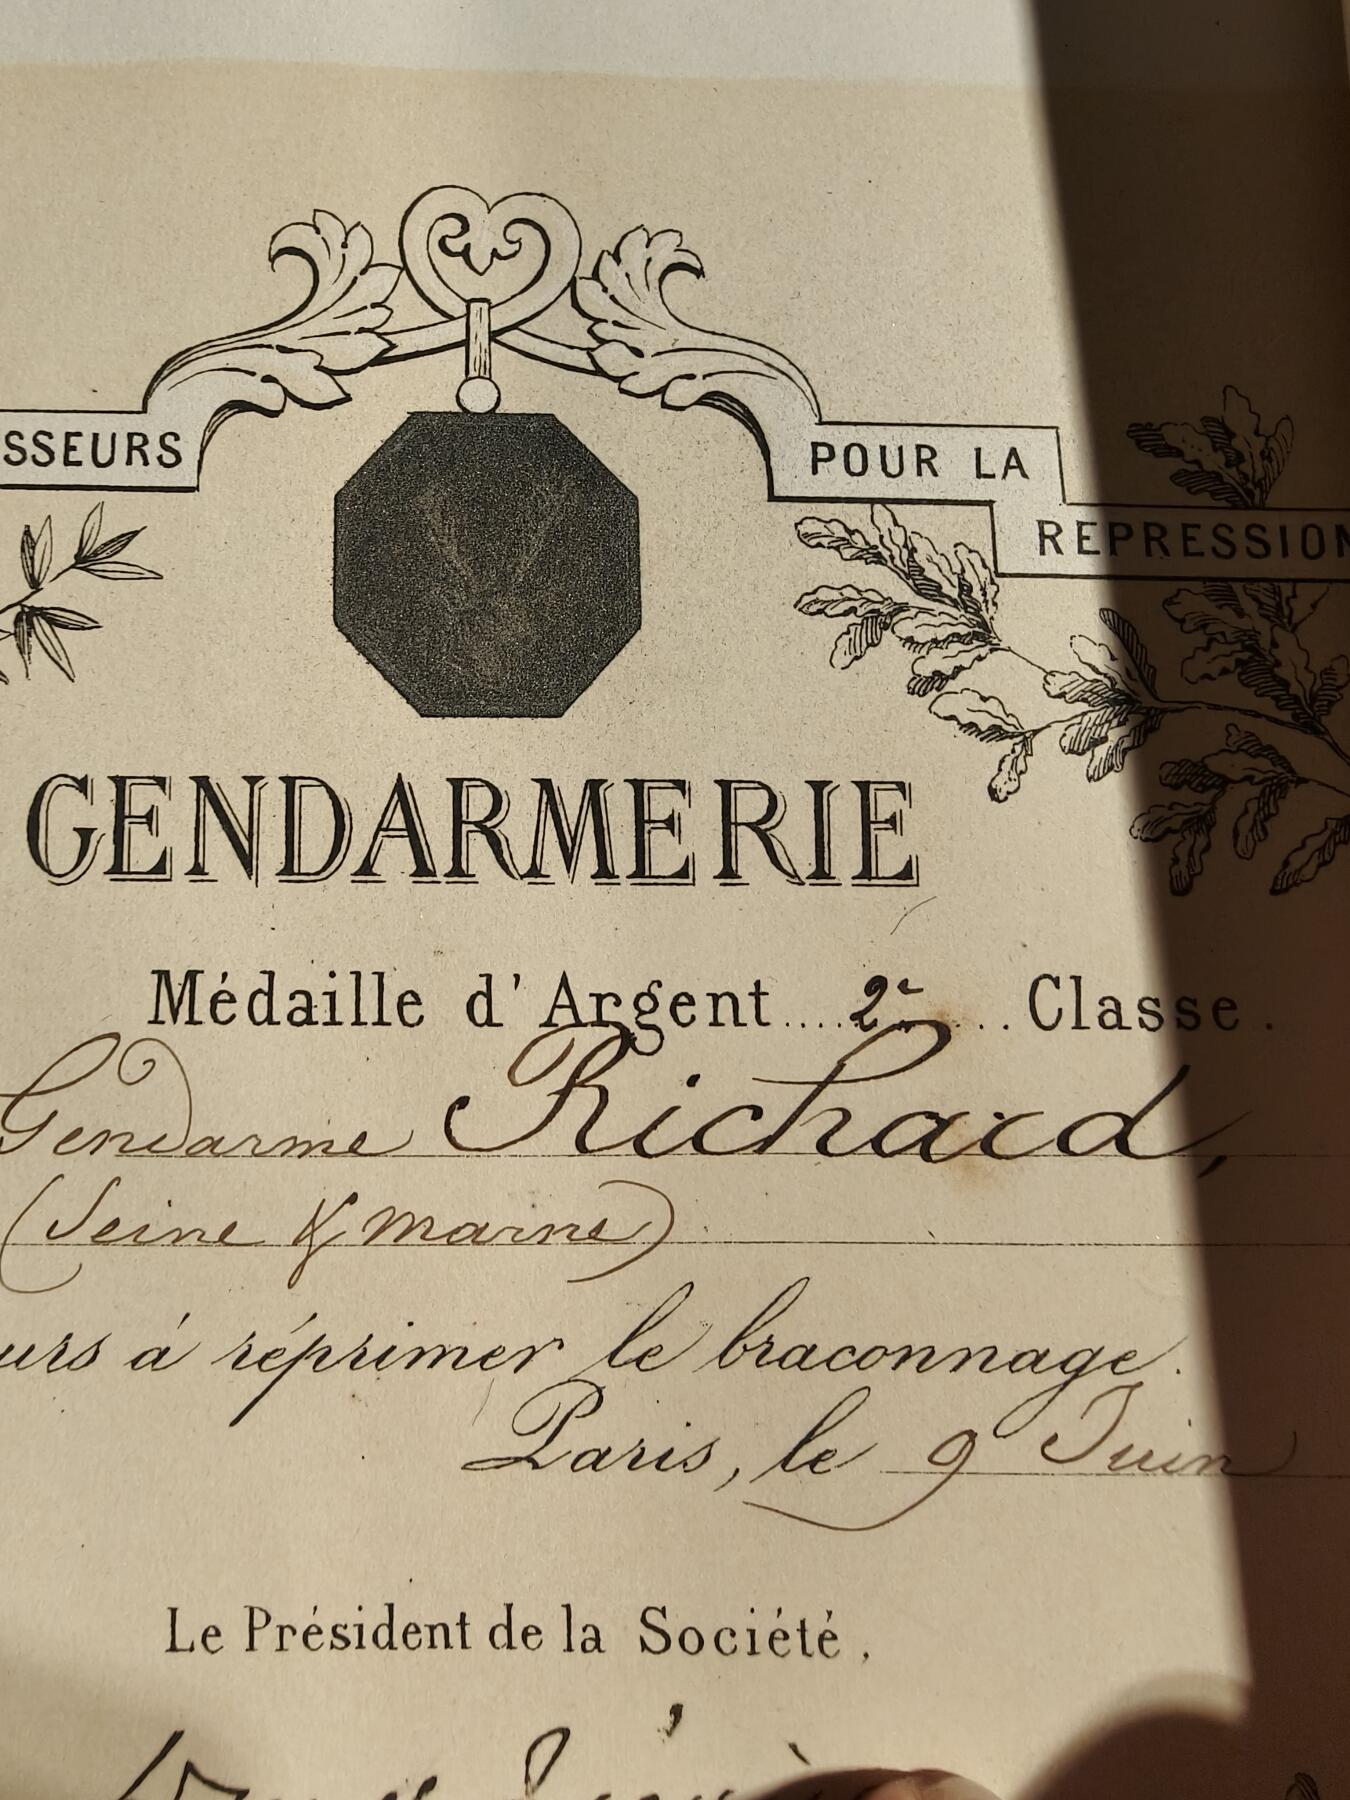 SSEURS
POUR LA
REPRESSION
GENDARMERIE
Médaille d'Argent .... 2e ... Classe.
Gendarme Richard,
(Seine & marne)
urs à réprimer le braconnage.
Paris, le 9 Juin
Le Président de la Société,